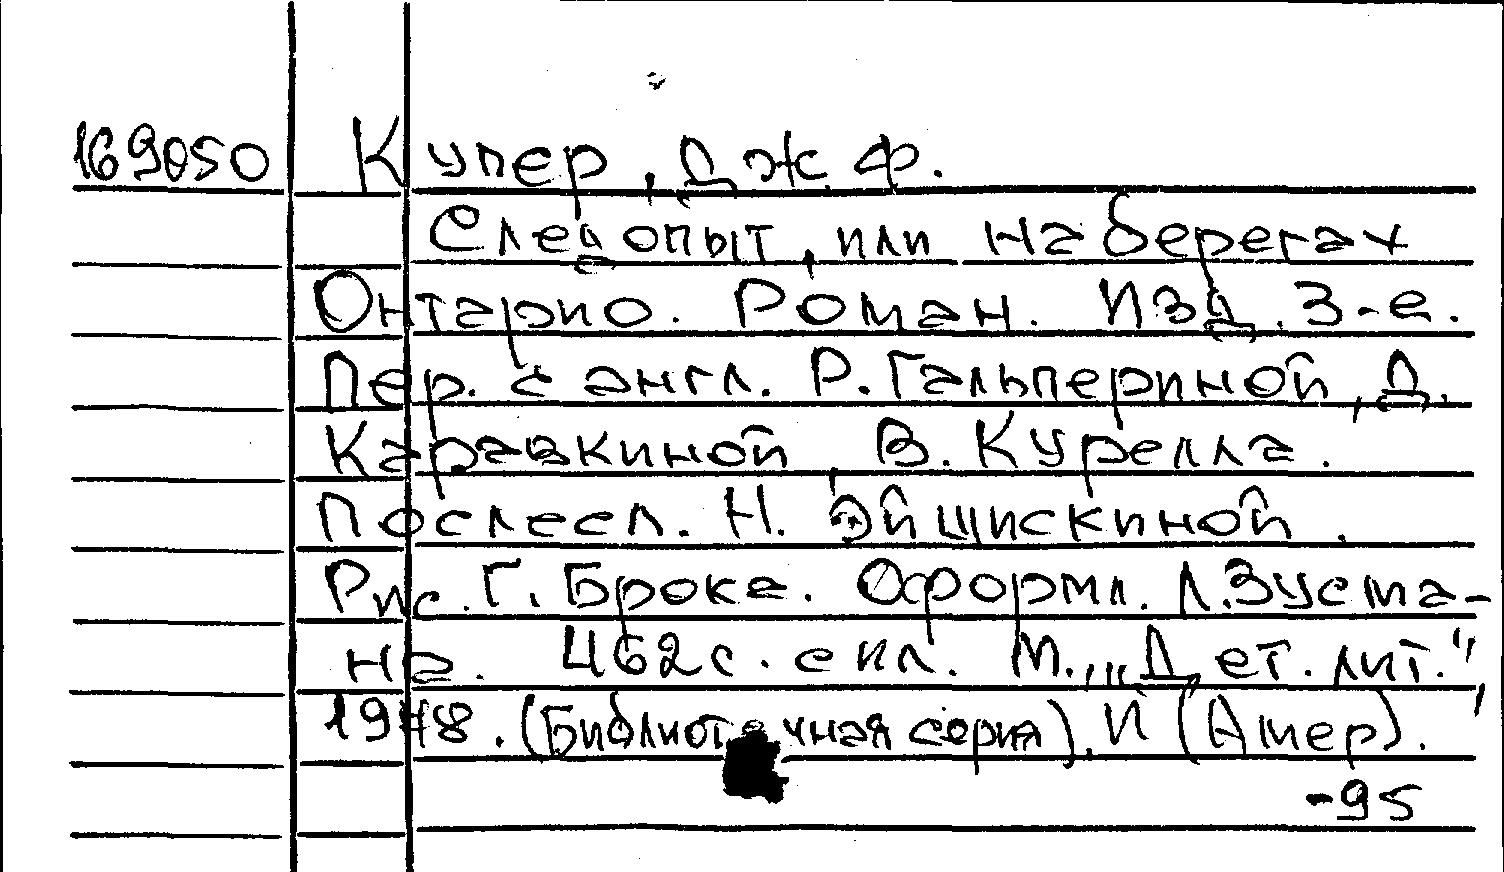 169050 Купер, Дж. Ф.
Следопыт, или На берегах
Онтарио. Роман. Изд. 3-е.
Пер. с англ. Р. Гальпериной, Д.
Каравкиной, В. Курелла.
Послесл. Н. Эйшискиной.
Рис. Г. Брока. Оформл. Л. Зусма-
на. 462с. с ил. М., „Дет. лит.",
1978. (Библиотечная серия). И (Амер).
-95